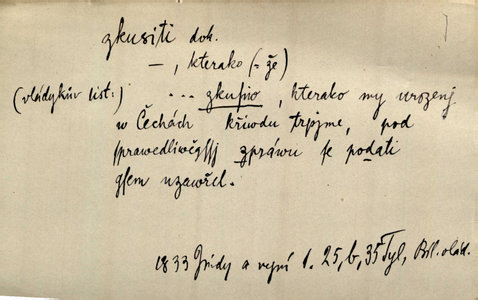 zkusiti dok.
—, kterako (= že)
(vládykův list:) ... zkusiv, kterako my urozenj
w Čechách křiwdu trpjme, pod
sprawedliwěgssj zpráwu se podati
gsem uzawřel.
1833 Jindy a nynj 1. 25, b, 35 Tyl,